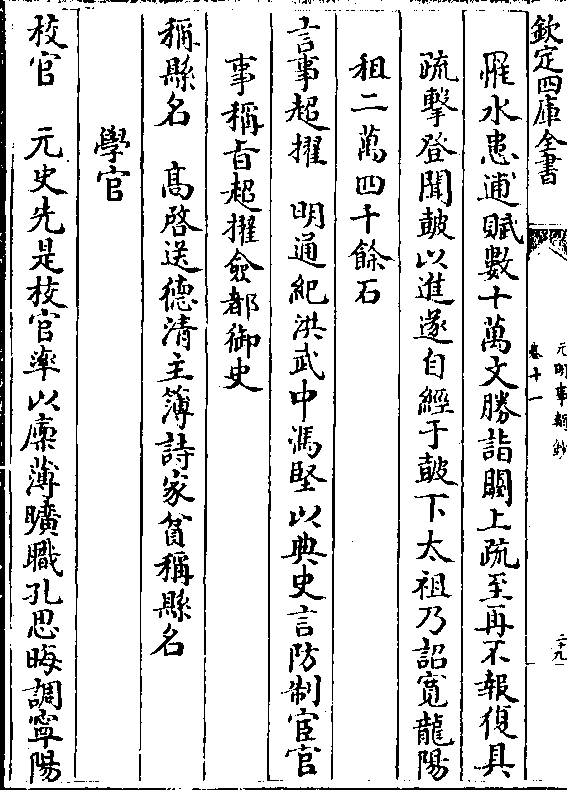 欽定四庫全書
元明事類鈔
卷十一
二十九
罹水患逋賦數十萬文勝詣闕上疏至再不報復具
疏擊登聞皷以進遂自經于皷下太祖乃詔寛龍陽
租二萬四千餘石
言事超擢　明通紀洪武中馮堅以典史言防制宦官
事稱旨超擢僉都御史
稱縣名　髙啓送德清主簿詩家貧稱縣名
學官
校官　元史先是校官率以廩薄曠職孔思晦調寧陽